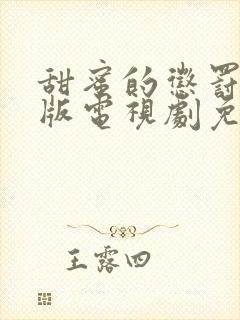 甜蜜的懲罰
版電視劇免
王露四